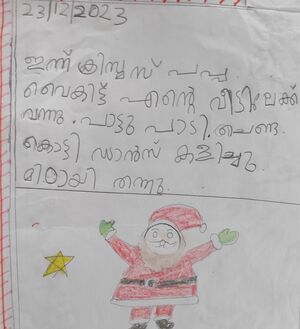 23/12/2023
ഇന്ന് ക്രിസ്മസ് പപ്പ
വൈകിട്ട് എന്റെ വീട്ടിലേക്ക്
വന്നു. പാട്ടു പാടി. ചെണ്ട
കൊട്ടി ഡാൻസ് കളിച്ചു.
മിഠായി തന്നു.